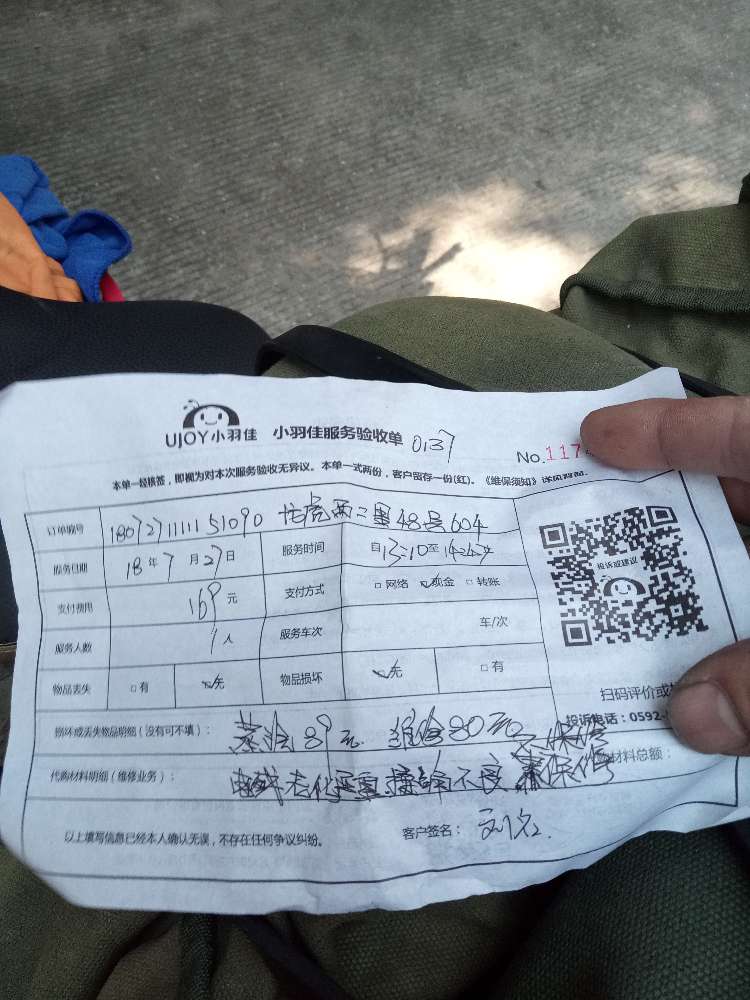 UJOY小羽佳 小羽佳服务验收单 0137
No.117
本单一经核签，即视为对本次服务验收无异议。本单一式两份，客户留存一份(红)。《维保须知》详见背面。
订单编号 18072711111151090 西二里48号604
服务日期 18年7月27日 服务时间 自13:10至14:24
支付费用 169元 支付方式 □网络 ☑现金 □转账
服务人数 1人 服务车次 车/次
物品丢失 □有 ☑无 物品损坏 ☑无 □有
投诉或建议
扫码评价或
投诉电话：0592-
损坏或丢失物品明细（没有可不填）： 89元 80元 不保修
代购材料明细（维修业务）： 老化严重 接 不良 保修 材料总额：
以上填写信息已经本人确认无误，不存在任何争议纠纷。 客户签名：